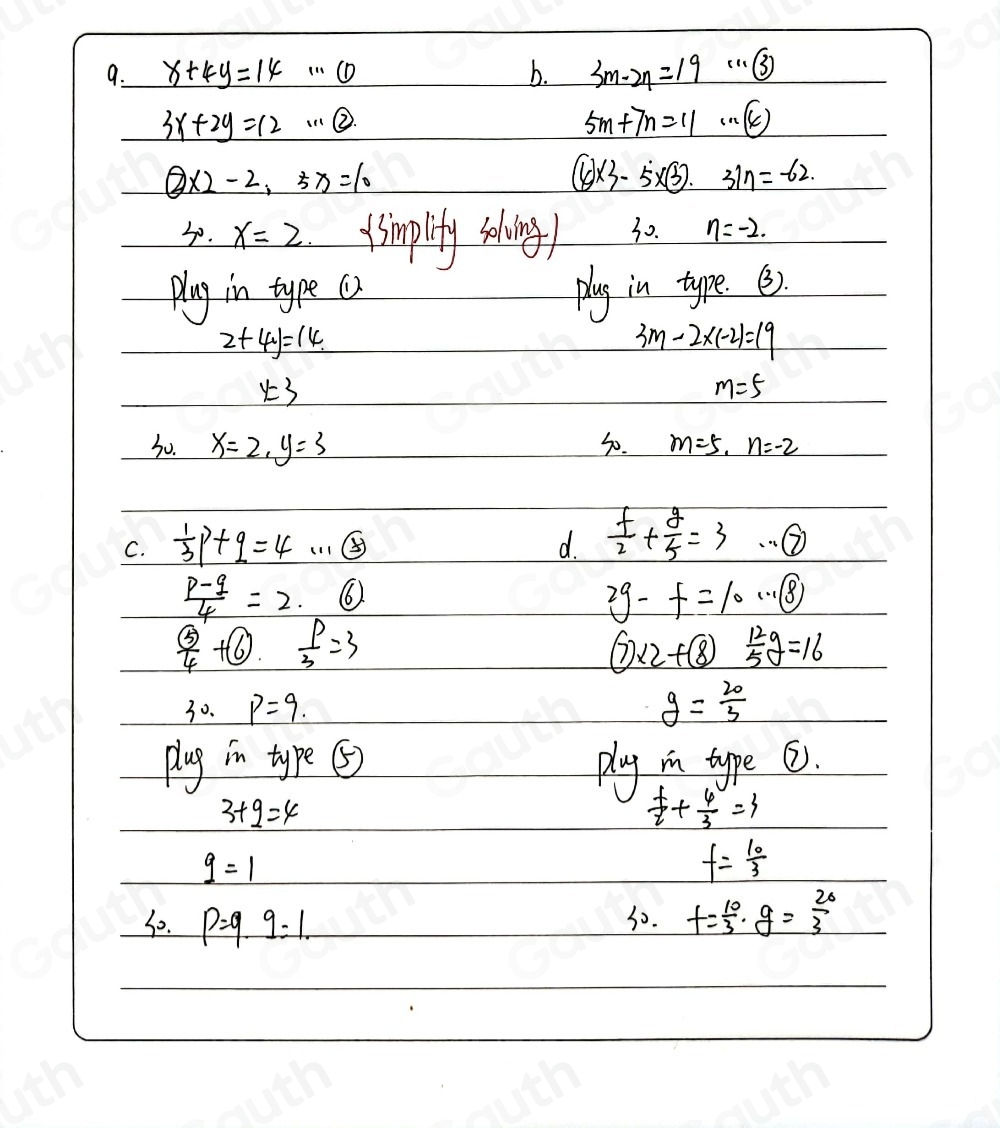 a. x+4y=14 ... ①
3x+2y=12 ... ②.
②×2-2, 5x=10
so. x=2. {simplify solving)
plug in type ①.
2+4y=14.
y=3
so. x=2, y=3
b. 3m-2n=19 ...③
5m+7n=11 ...④
④×3-5×③. 31n=-62.
so. n=-2.
plug in type. ③.
3m-2×(-2)=19
m=5
so. m=5. n=-2
c. 1/3 p+q=4 ... ⑤
(p-q)/4 = 2. ⑥
⑤/4 +⑥. p/3=3
so. p=9.
plug in type ⑤
3+q=4
q=1
so. p=9. q=1.
d. f/2 + g/5 = 3 ...⑦
2g-f=10 ...⑧
⑦×2+⑧ 12/5 g=16
g = 20/3
plug in type ⑦.
f/2 + 4/3 = 3
f= 10/3
so. f=10/3. g = 20/3
Gauth